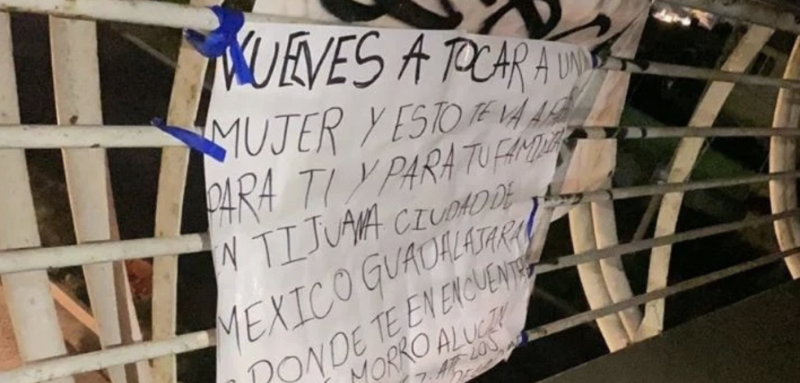 VUELVES A TOCAR A UNA
MUJER Y ESTO TE VA A
PARA TI Y PARA TU FAMILIA
EN TIJUANA CIUDAD DE
MEXICO GUADALAJARA
O DONDE TE EN ENCUENTRE
MORRO ALUCIN